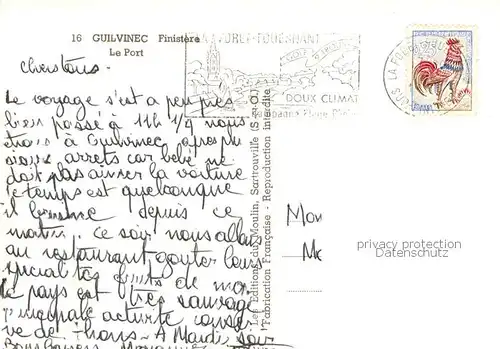 16 GUILVINEC Finistère
Le Port
LA FORÊT-FOUESNANT
DOUX CLIMAT
chers tous.
Le voyage s'est a peu près
bien passé à 11h 1/4 nous
étions à Guilvinec après
arrets car bébé ne
doit pas aimer la voiture
le temps est quelconque
il bruine depuis ce
matin. Ce soir nous allons
au restaurant gouter leurs
spécialités fruits de mer
le pays est très sauvage
principale activité conser
ve de thons. A Mardi soir
Les Editions du Moulin, Sartrouville (S.-&-O.)
Fabrication Française - Reproduction interdite
privacy protection
Datenschutz